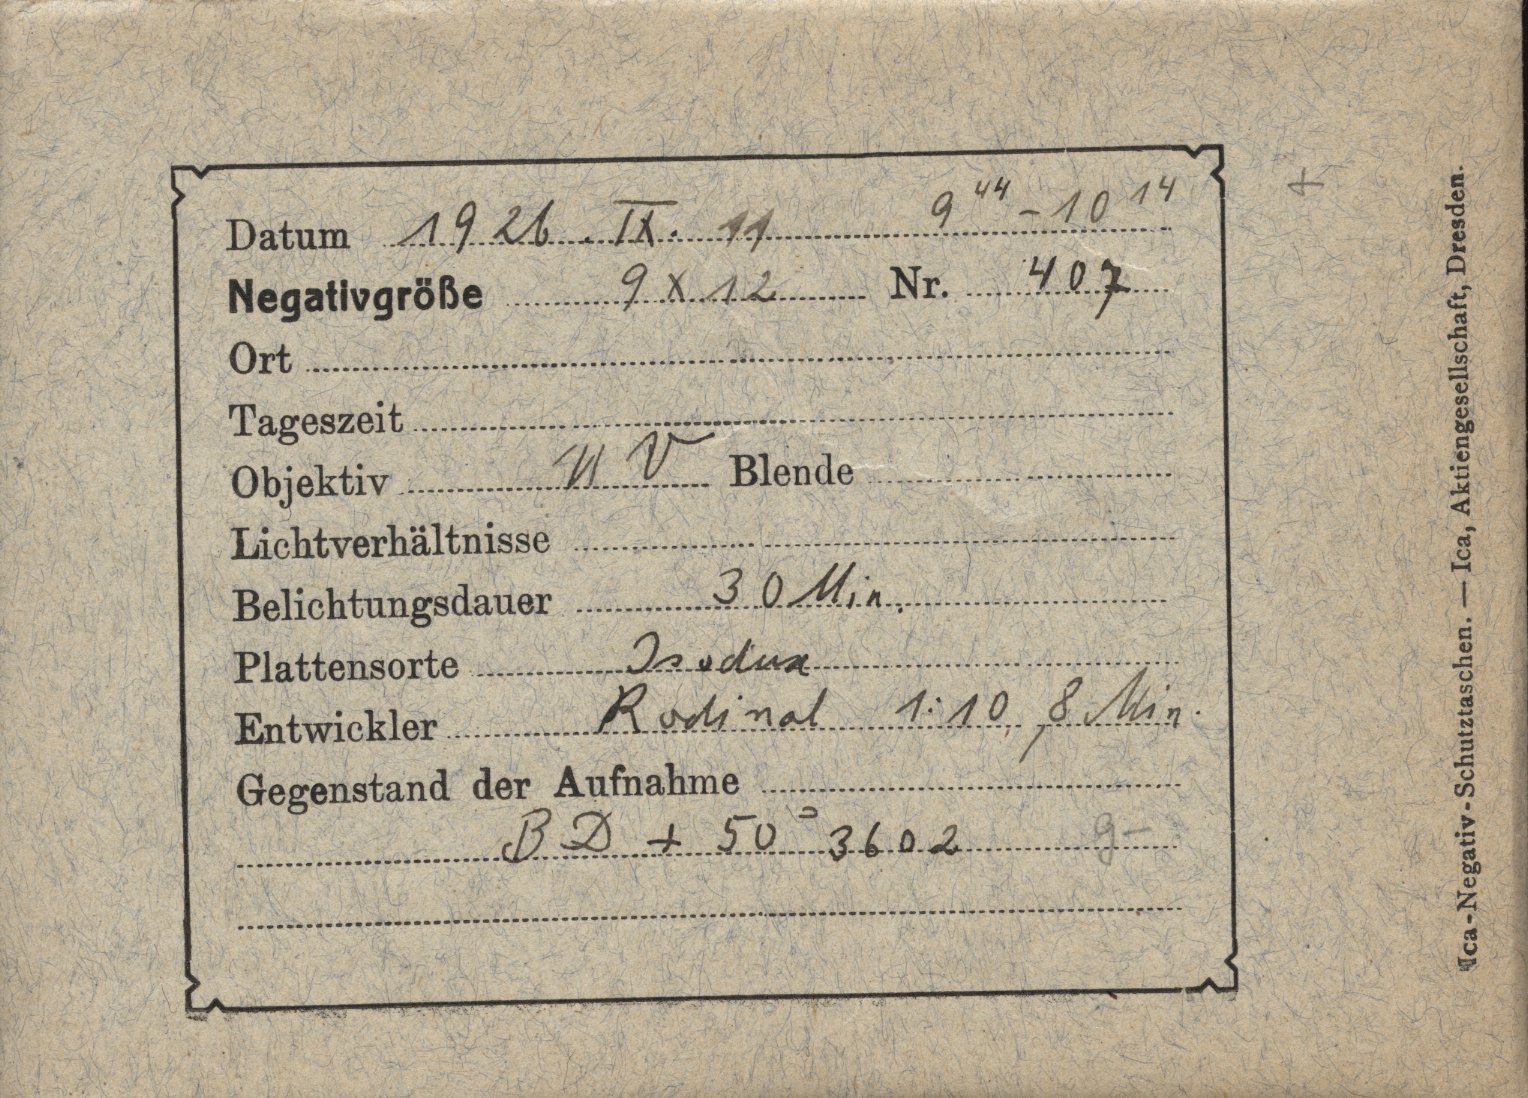 Datum 1926. IX. 11 9⁴⁴ - 10¹⁴
Negativgröße 9 x 12 Nr. 407
Ort
Tageszeit
Objektiv UV Blende
Lichtverhältnisse
Belichtungsdauer 30 Min.
Plattensorte Isodux
Entwickler Rodinal 1:10, 8 Min.
Gegenstand der Aufnahme
BD + 50° 3602 g-
Ica-Negativ-Schutztaschen. — Ica, Aktiengesellschaft, Dresden.
+